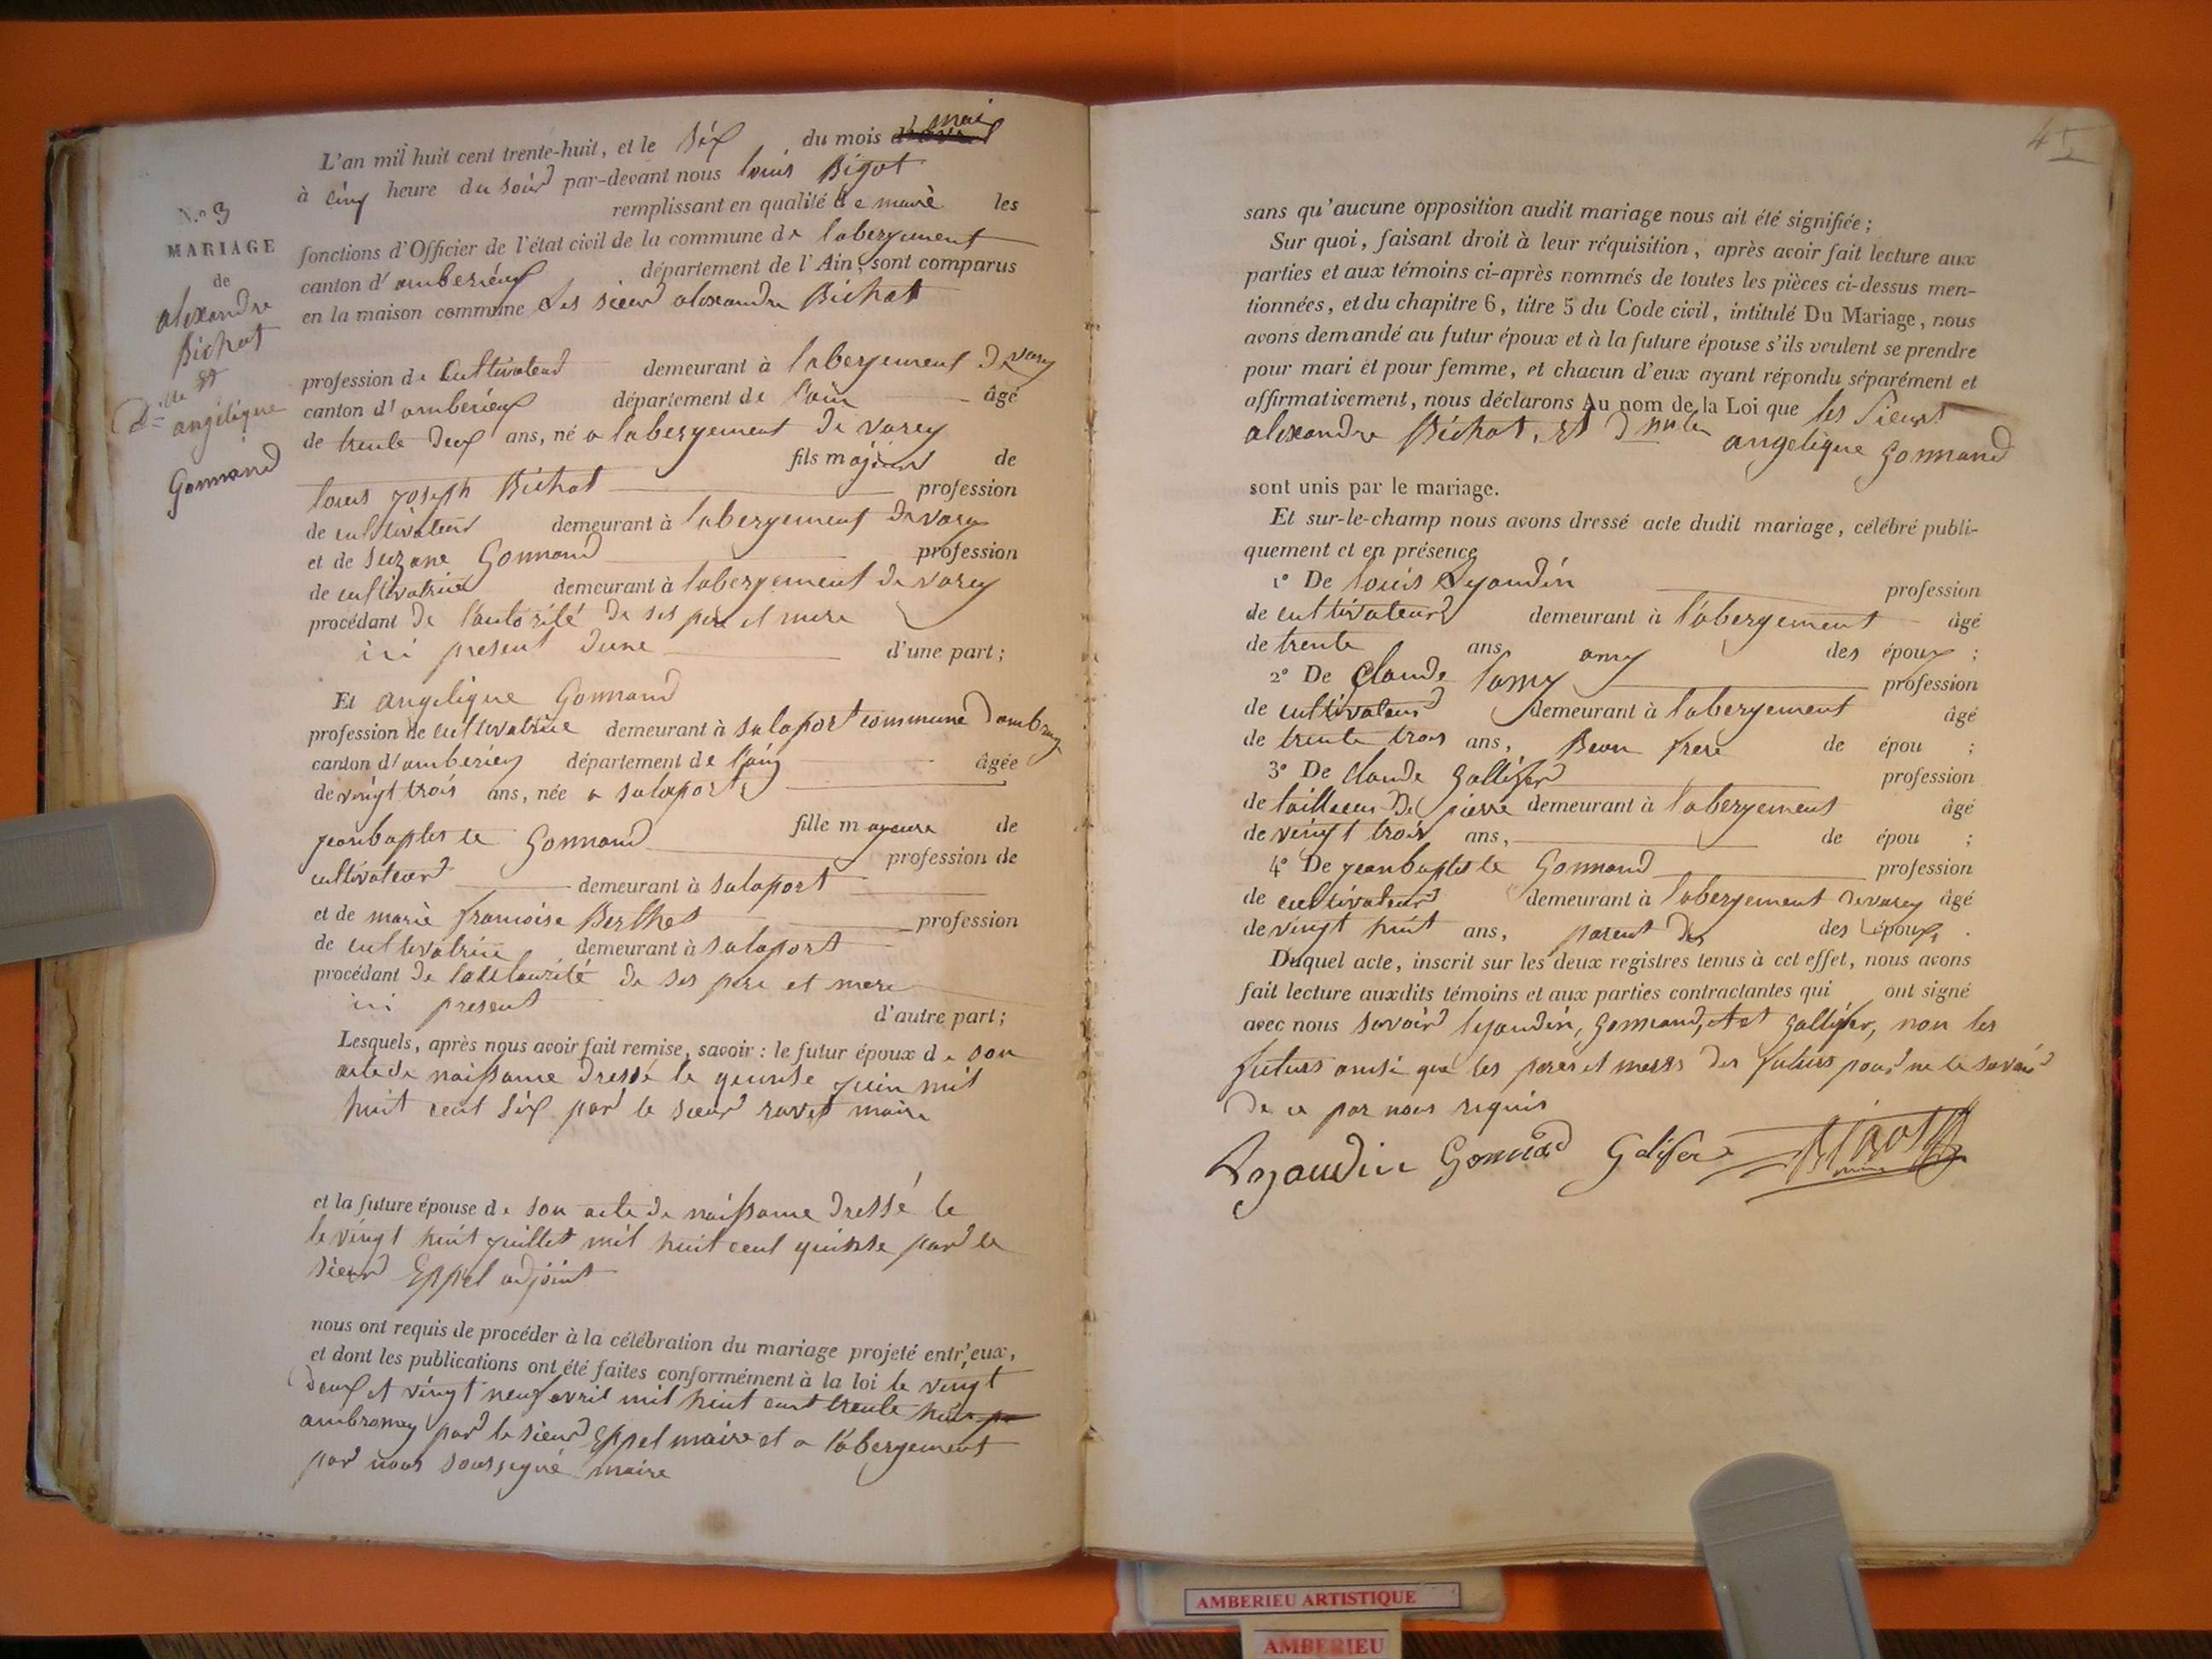 L'an mil huit cent trente-huit, et le Six du mois d'avril mai
à cinq heure du soird par-devant nous louis Bigot
remplissant en qualité de maire les
fonctions d'Officier de l'état civil de la commune de labergement
canton d'amberieux département de l'Ain, sont comparus
en la maison commune les sieurd alexandre Bichat
N.º 3
MARIAGE
de
alexandre
Bichat
et
D.lle
angélique
Gonnand
profession de Cultivateud demeurant à labergement de varey
canton d'amberieux département de l'ain âgé
de trente deux ans, né a labergement de varey
fils majeurd de
louis joseph Bichat profession
de cultivateur demeurant à labergement de varey
et de Suzane Gonnand profession
de cultivatrice demeurant à labergement de varey
procédant de l'autorité de ses pere et mere
ici present dune d'une part;
Et angelique Gonnand
profession de cultivatrice demeurant à salaport commune dambronay
canton d'amberieux département de l'ain âgée
de vingt trois ans, née a salaport
fille majeure de
jeanbaptiste Gonnand profession de
cultivateurd demeurant à salaport
et de marie francoise Berthet profession
de cultivatrice demeurant à salaport
procédant de lauthorité de ses pere et mere
ici present d'autre part;
Lesquels, après nous avoir fait remise, savoir : le futur époux de son
acte de naissance dressé le quinse juin mil
huit cent six pard le sieurd ravet maire
et la future épouse de son acte de naissance dressé le
le vingt huit juillet mil huit cent quinse pard le
sieurd Eppel adjoint
nous ont requis de procéder à la célébration du mariage projeté entr'eux,
et dont les publications ont été faites conformément à la loi le vingt
deux et vingt neuf avril mil huit cent trente huit
ambronay pard le sieurd Eppel maire et a labergement
pard nous soussigné maire
45
sans qu'aucune opposition audit mariage nous ait été signifiée;
Sur quoi, faisant droit à leur réquisition, après avoir fait lecture aux
parties et aux témoins ci-après nommés de toutes les pièces ci-dessus men-
tionnées, et du chapitre 6, titre 5 du Code civil, intitulé Du Mariage, nous
avons demandé au futur époux et à la future épouse s'ils veulent se prendre
pour mari et pour femme, et chacun d'eux ayant répondu séparément et
affirmativement, nous déclarons Au nom de la Loi que les Sieurs
alexandre Bichat, et angelique Gonnand
sont unis par le mariage.
Et sur-le-champ nous avons dressé acte dudit mariage, célébré publi-
quement et en présence
1º De louis Lyaudin profession
de cultivateurd demeurant à labergement âgé
de trente ans, amy des époux ;
2º De Claude lamy profession
de cultivateurd demeurant à labergement âgé
de trente trois ans, Beau frere de épou ;
3º De Claude Gallifer profession
de tailleur De pierre demeurant à labergement âgé
de vingt trois ans, de épou ;
4º De jeanbaptiste Gonnand profession
de cultivateurd demeurant à labergement de varey âgé
de vingt huit ans, parent des des époux.
Duquel acte, inscrit sur les deux registres tenus à cet effet, nous avons
fait lecture auxdits témoins et aux parties contractantes qui ont signé
avec nous savoird lyaudin, Gonnand, et Gallifer, non les
futurs ainsi que les peres et meres des futurs pourd ne le savoird
de ce par nous requis
Lyaudin Gonnad Galifer Bigot
maire
AMBERIEU ARTISTIQUE
AMBERIEU